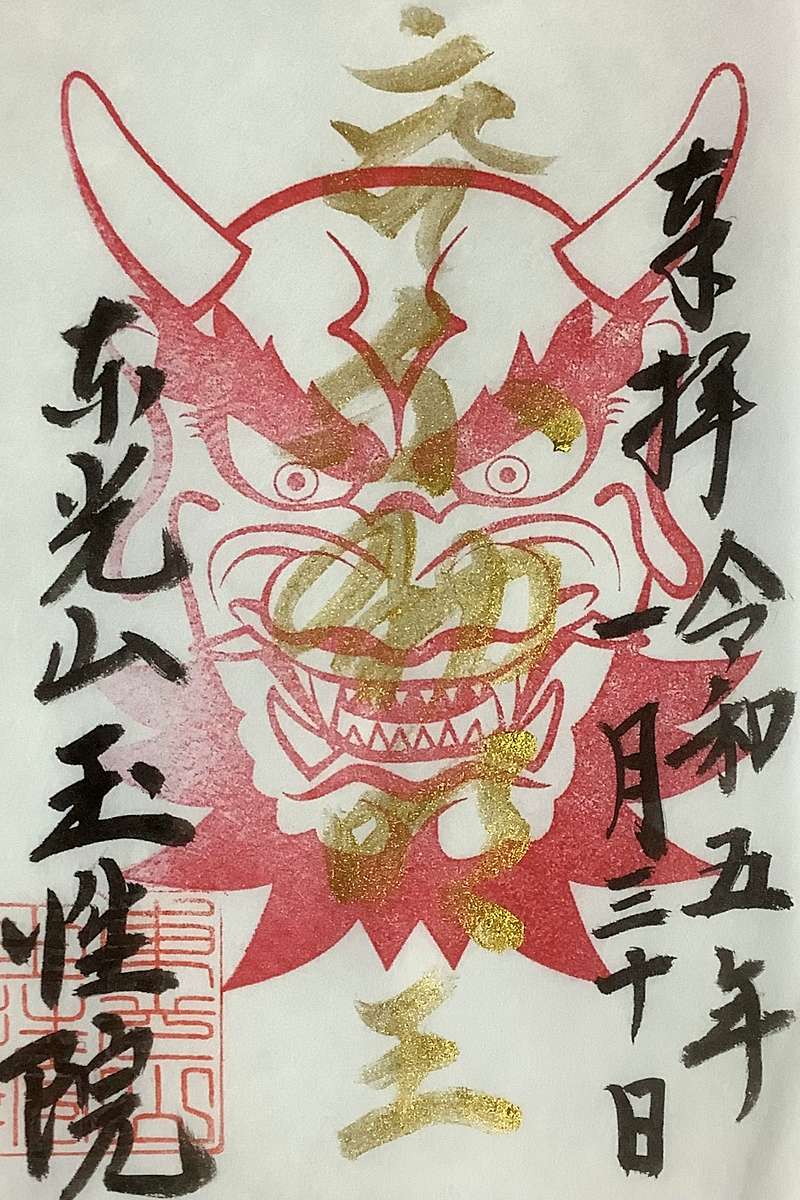 奉拝
令和五年
一月三十日
不動明王
東光山玉性院